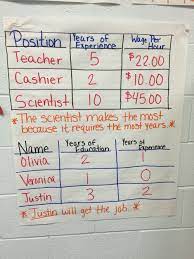 Position Years of Experience Wage Per Hour
Teacher 5 $22.00
Cashier 2 $10.00
Scientist 10 $45.00
*The scientist makes the most
because it requires the most years.*
Name Years of Education Years of Experience
Olivia 2 1
Veronica 1 0
Justin 3 2
*Justin will get the job.*